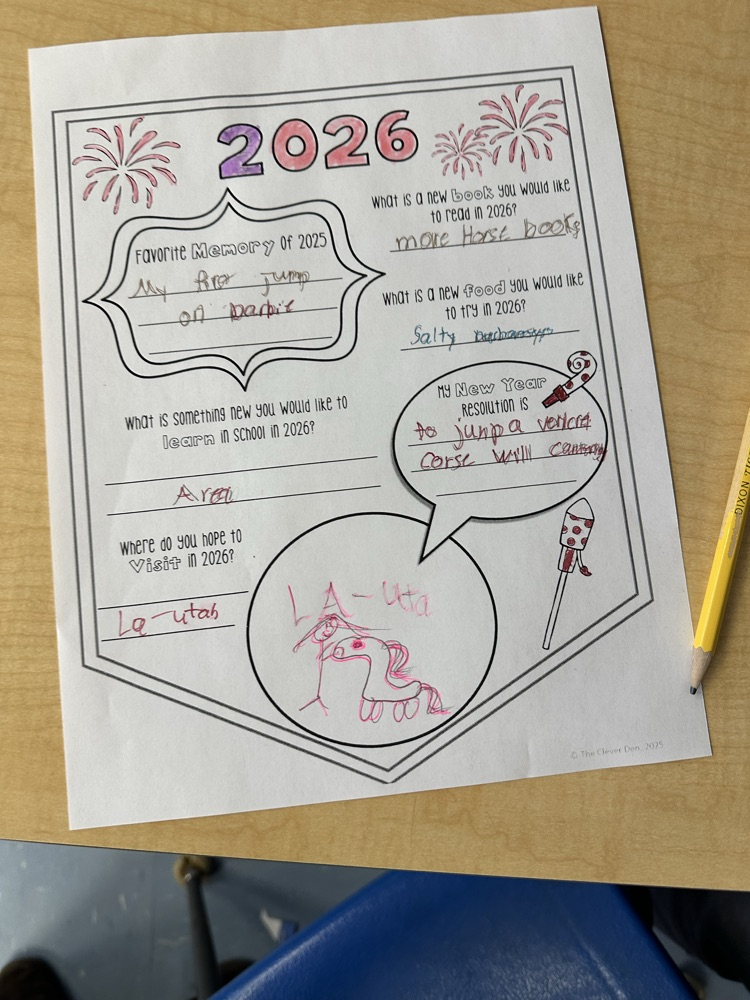 2026
What is a new book you would like
to read in 2026?
more Horse books
Favorite Memory of 2025
My firo jump
on barbie
What is a new food you would like
to try in 2026?
Salty
What is something new you would like to
learn in school in 2026?
Area
My New Year
Resolution is
to jump a
corse will
Where do you hope to
Visit in 2026?
La-utah
LA-uta
© The Clever Den, 2025